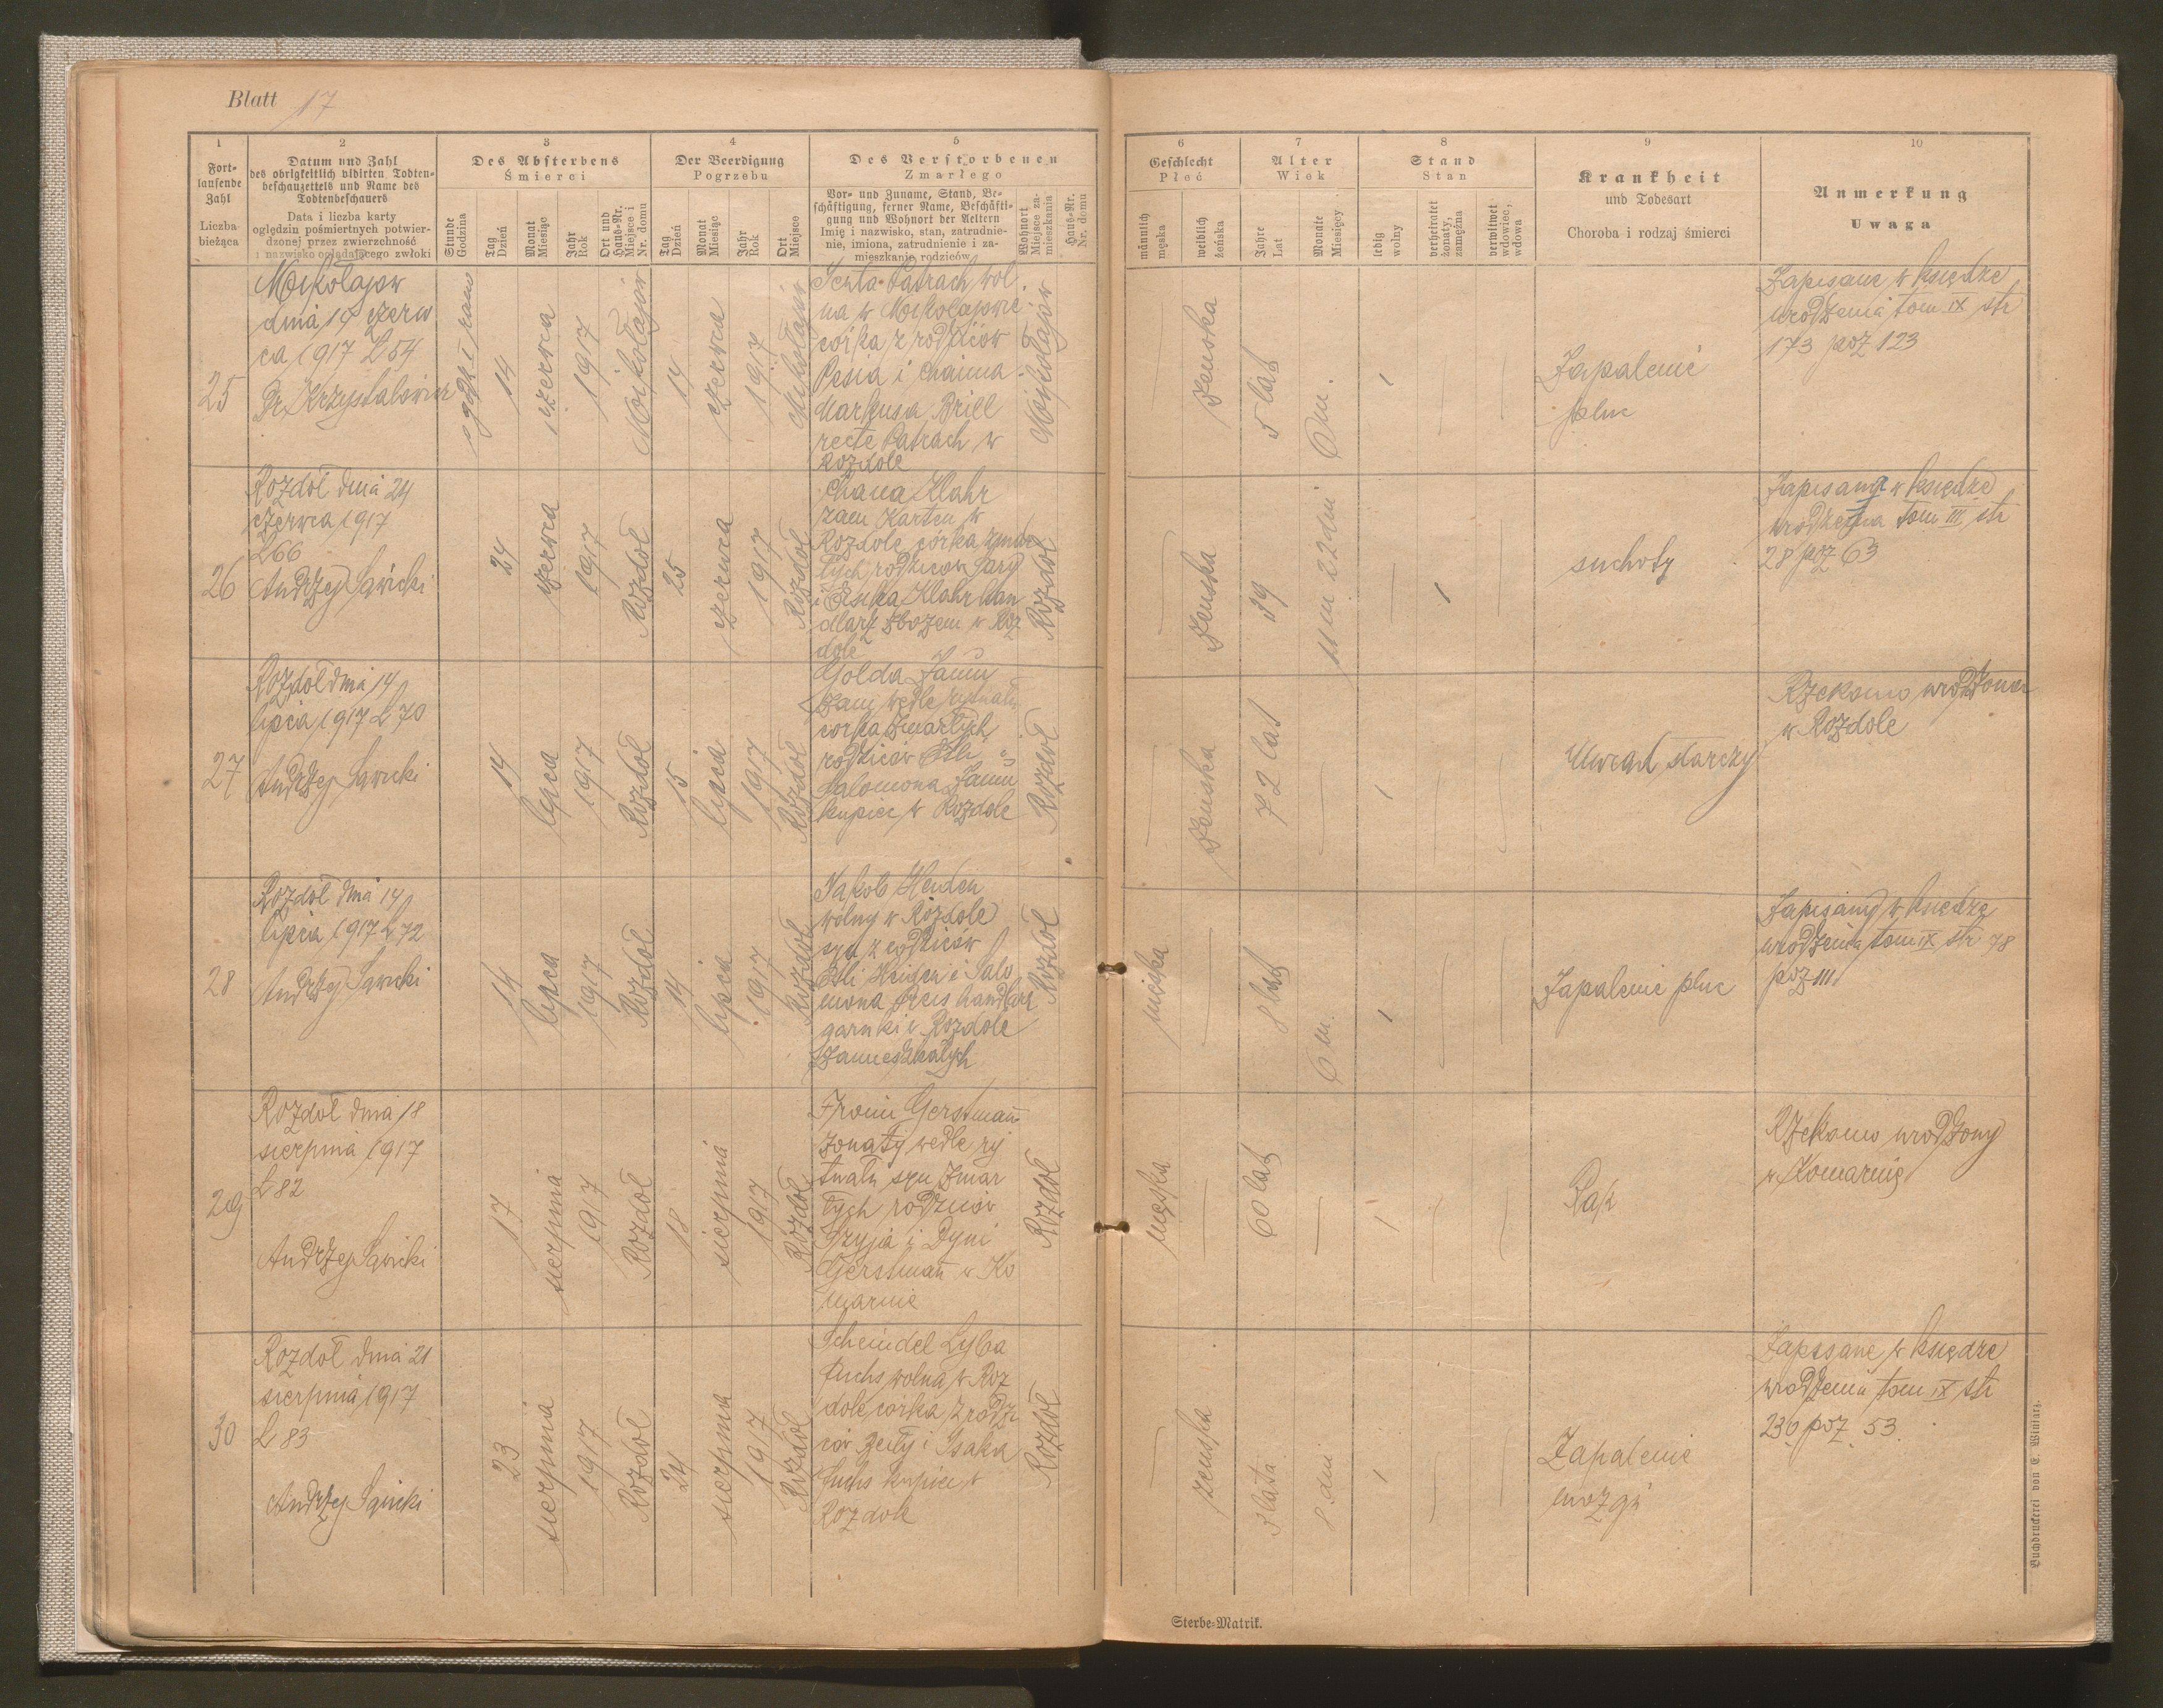 Blatt 17
1
Fort-
laufende
Zahl
Liczba
bieżąca
2
Datum und Zahl
des obrigkeitlich vidirten Todten-
beschauzettels und Name des
Todtenbeschauers
Data i liczba karty
oględzin pośmiertnych potwier-
dzonej przez zwierzchność
i nazwisko oglądającego zwłoki
3
Des Absterbens
Śmierci
Stunde
Godzina
Tag
Dzień
Monat
Miesiąc
Jahr
Rok
Ort und
Haus-Nr.
Miejsce i
Nr. domu
4
Der Beerdigung
Pogrzebu
Tag
Dzień
Monat
Miesiąc
Jahr
Rok
Ort
Miejsce
5
Des Verstorbenen
Zmarłego
Vor- und Zuname, Stand, Be-
schäftigung, ferner Name, Beschäfti-
gung und Wohnort der Aeltern
Imię i nazwisko, stan, zatrudnie-
nie, imiona, zatrudnienie i za-
mieszkanie rodziców
Wohnort
Miejsce za-
mieszkania
Haus-Nr.
Nr. domu
6
Geschlecht
Płeć
männlich
męska
weiblich
żeńska
7
Alter
Wiek
Jahre
Lat
Monate
Miesięcy
8
Stand
Stan
ledig
wolny
verheiratet
żonaty,
zamężna
verwitwet
wdowiec,
wdowa
9
Krankheit
und Todesart
Choroba i rodzaj śmierci
10
Anmerkung
Uwaga
25
Mikołajow
dnia 14 czerw
ca 1917 L 54
Dr Krzyształowicz
rano
14
czerwca
1917
Mikołajów
14
czerwca
1917
Mikołajów
Patrach wol
na w Mikołajowie
córka z rodziców
Pesia i Chaima
Markusa Brill
recte Patrach w
Rozdole
Mikołajów
żeńska
5 lat
6 m.
1
Zapalenie
płuc
Zapisane w księdze
urodzenia tom IX str
173 poz 123
26
Rozdół dnia 24
czerwca 1917
L 66
Andrzej Sawicki
24
czerwca
1917
Rozdół
25
czerwca
1917
Rozdół
Chana Klahr
zam Karten w
Rozdole córka zmar
łych rodziców Sary
i Eisika Klahr han
dlarz zbożem w Roz
dole
Rozdół
żeńska
39
22 dni
1
suchoty
Zapisana w księdze
urodzenia tom III str
28 poz 63
27
Rozdół dnia 14
lipca 1917 L 70
Andrzej Sawicki
14
lipca
1917
Rozdół
15
lipca
1917
Rozdół
Golda
zam wedle rytuału
córka zmarłych
rodziców
Salomona
kupiec w Rozdole
Rozdół
żeńska
72 lat
1
Uwiąd starczy
Rzekomo urodzona
w Rozdole
28
Rozdół dnia 14
lipca 1917 L 72
Andrzej Sawicki
14
lipca
1917
Rozdół
14
lipca
1917
Rozdół
Jakob
wolny w Rozdole
syn z rodziców
i Salo
mona handlarz
garnki w Rozdole
zamieszkałych
Rozdół
męska
8 lat
6 m.
1
Zapalenie płuc
Zapisany w księdze
urodzenia tom IX str 78
poz 111
29
Rozdół dnia 18
sierpnia 1917
L 82
Andrzej Sawicki
17
sierpnia
1917
Rozdół
18
sierpnia
1917
Rozdół
Froim Gerstmann
żonaty wedle ry
tuału syn zmar
łych rodziców
i Dyni
Gerstmann w Ko
marnie
Rozdół
męska
60 lat
1
Rak
Rzekomo urodzony
w Komarnie
30
Rozdół dnia 21
sierpnia 1917
L 83
Andrzej Sawicki
23
sierpnia
1917
Rozdół
24
sierpnia
1917
Rozdół
Scheindel Lyba
Fuchs wolna w Roz
dole córka z rodzi
ców i Isaka
Fuchs kupiec w
Rozdole
Rozdół
żeńska
3 lata
8 dni
1
Zapalenie
mózgu
Zapisane w księdze
urodzenia tom IX str
230 poz 53
Sterbe-Matrik.
Buchdruckerei von E. Winiarz.